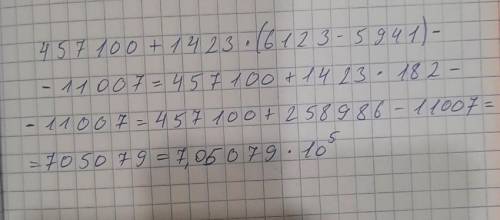 457100 + 1423 · (6123 - 5941) -
- 11007 = 457100 + 1423 · 182 -
- 11007 = 457100 + 258986 - 11007 =
= 705079 = 7,05079 · 10⁵